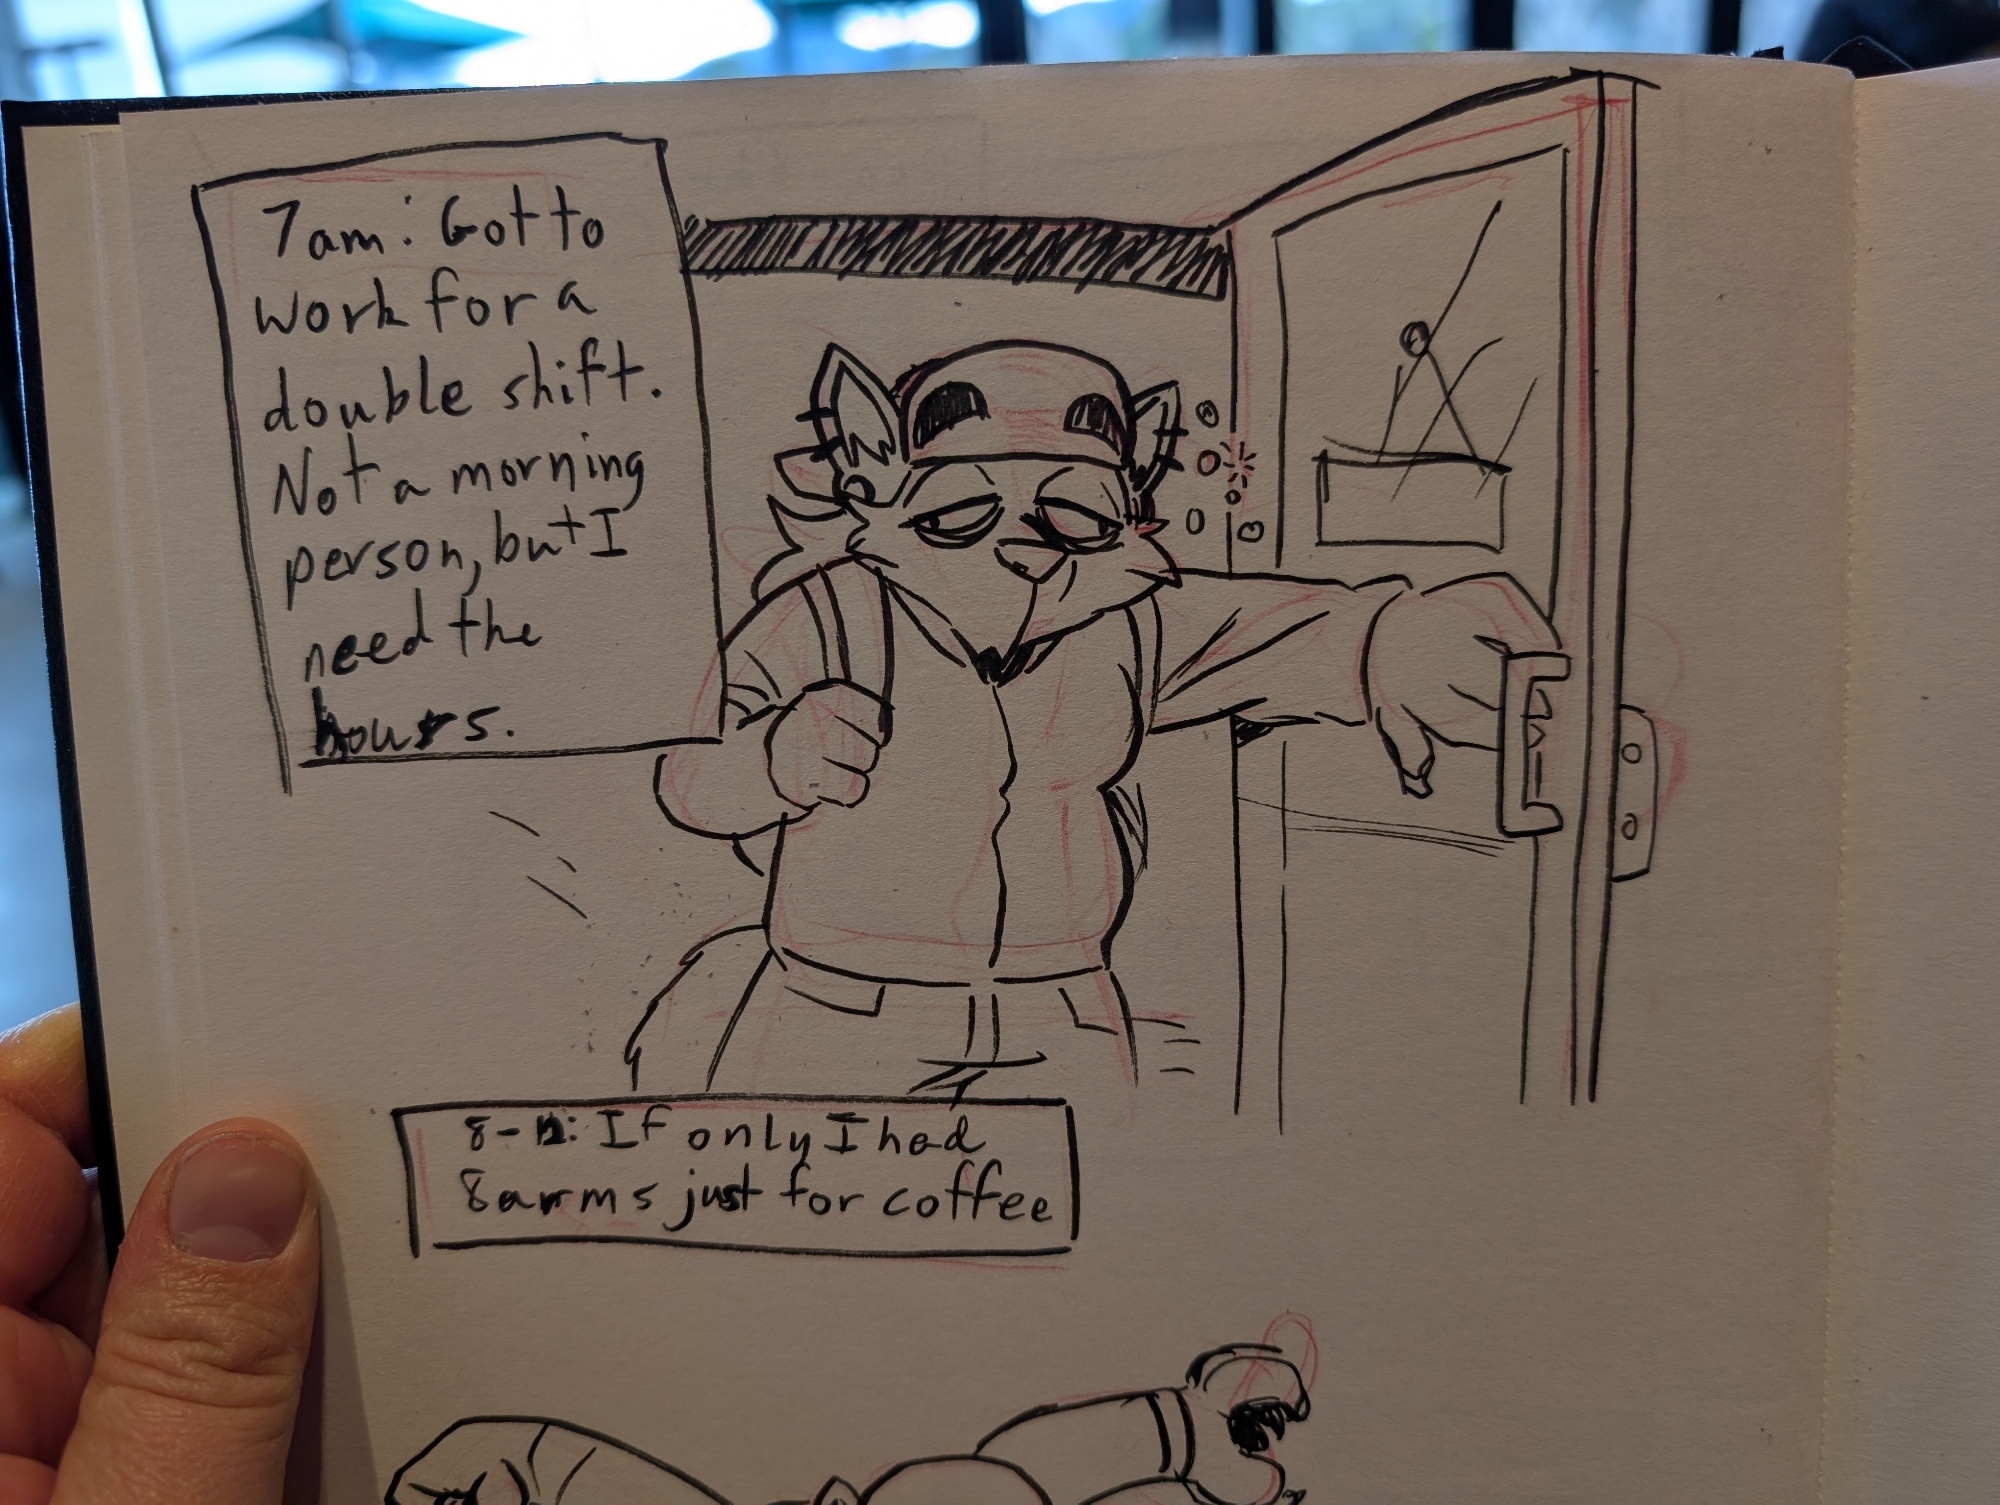 7am: Got to
work for a
double shift.
Not a morning
person, but I
need the
hours.
8-12: If only I had
8 arms just for coffee